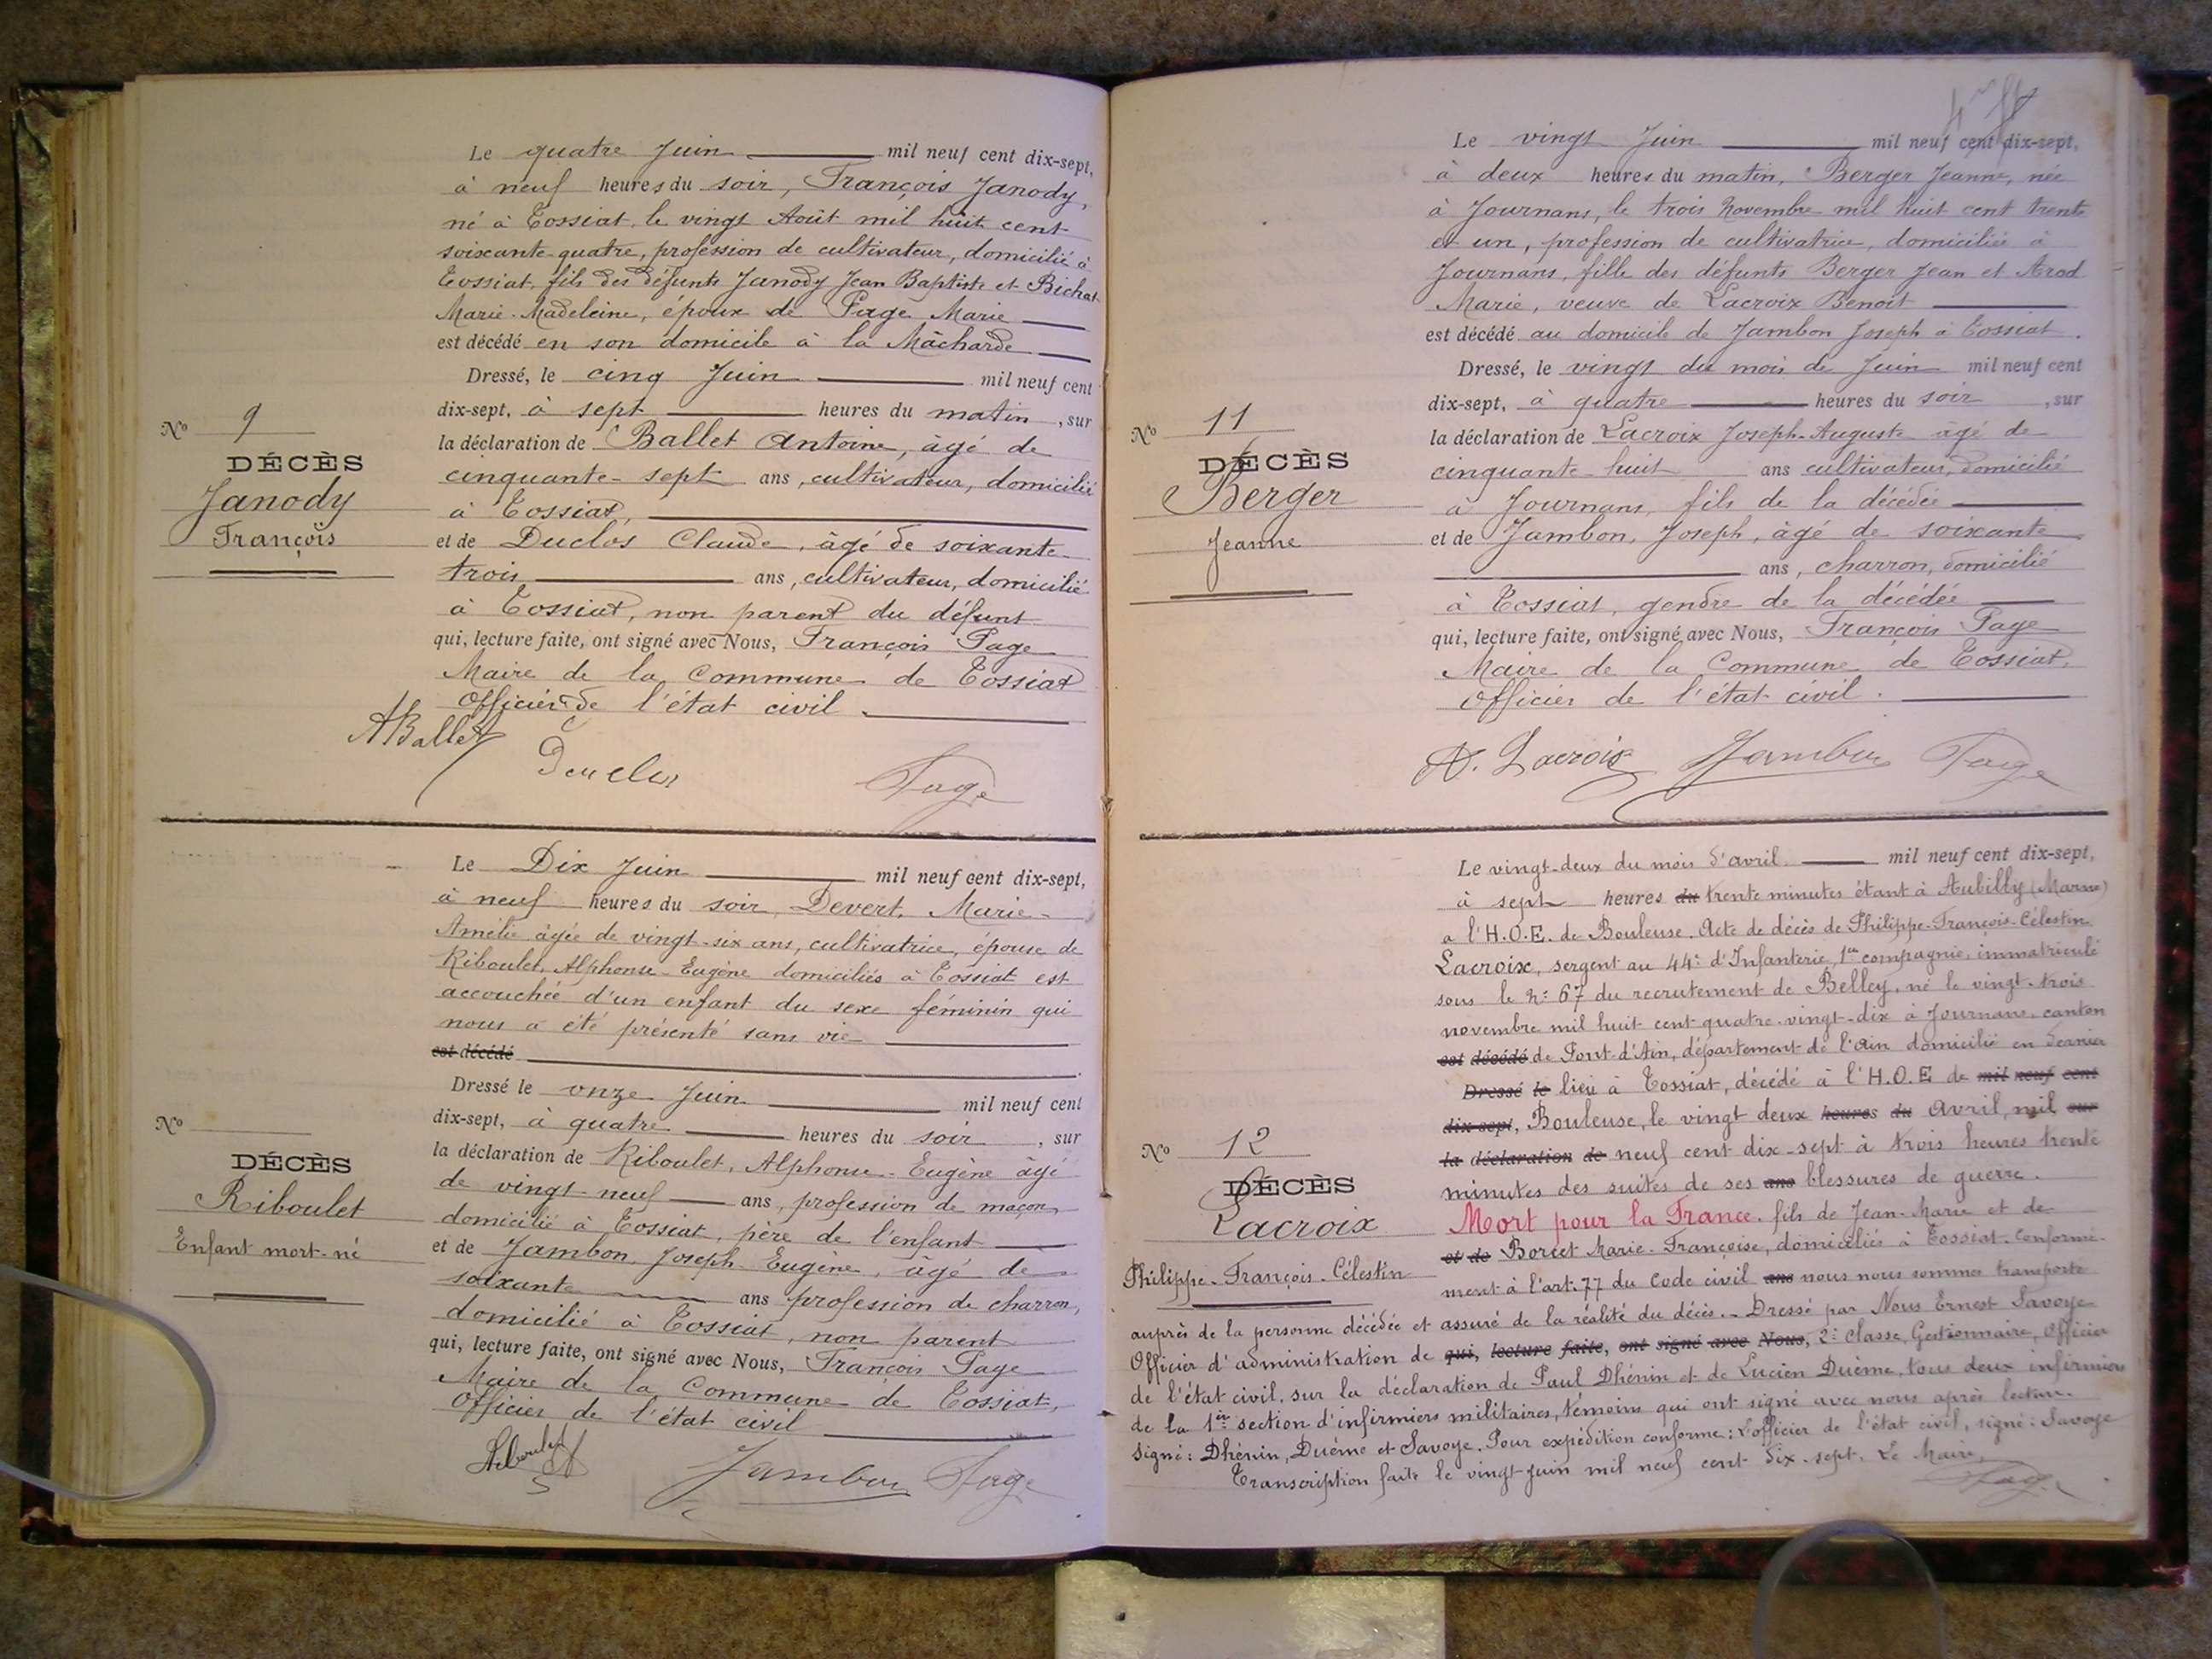 Le quatre Juin mil neuf cent dix-sept,
à neuf heures du soir, François Janody,
né à Tossiat, le vingt Août mil huit cent
soixante-quatre, profession de cultivateur, domicilié à
Tossiat, fils des défunts Janody Jean Baptiste et Bichat
Marie-Madeleine, époux de Page Marie
est décédé en son domicile à la Mâcharde
Dressé, le cinq Juin mil neuf cent
dix-sept, à sept heures du matin, sur
la déclaration de Ballet Antoine, âgé de
cinquante-sept ans, cultivateur, domicilié
à Tossiat,
et de Duclos Claude, âgé de soixante-
trois ans, cultivateur, domicilié
à Tossiat, non parent du défunt
qui, lecture faite, ont signé avec Nous, François Page
Maire de la Commune de Tossiat
Officier de l'état civil.
N° 9
DÉCÈS
Janody
François
ABallet
Duclos
Page
Le Dix Juin mil neuf cent dix-sept,
à neuf heures du soir, Devert, Marie-
Amélie âgée de vingt-six ans, cultivatrice, épouse de
Riboulet, Alphonse-Eugène domiciliés à Tossiat est
accouchée d'un enfant du sexe féminin qui
nous a été présenté sans vie
est décédé
Dressé le onze Juin mil neuf cent
dix-sept, à quatre heures du soir, sur
la déclaration de Riboulet, Alphonse-Eugène âgé
de vingt-neuf ans, profession de maçon
domicilié à Tossiat, père de l'enfant
et de Jambon, Joseph-Eugène, âgé de
soixante ans profession de charron,
domicilié à Tossiat, non parent
qui, lecture faite, ont signé avec Nous, François Page
Maire de la Commune de Tossiat,
Officier de l'état civil
N°
DÉCÈS
Riboulet
Enfant mort-né
Riboulet
Jambon Page
Le vingt Juin mil neuf cent dix-sept,
à deux heures du matin, Berger Jeanne, née
à Journans, le trois Novembre mil huit cent trente
et un, profession de cultivatrice, domiciliée à
Journans, fille des défunts Berger Jean et Arod
Marie, veuve de Lacroix Benoît
est décédé au domicile de Jambon Joseph à Tossiat.
Dressé, le vingt du mois de Juin mil neuf cent
dix-sept, à quatre heures du soir, sur
la déclaration de Lacroix Joseph-Auguste âgé de
cinquante-huit ans cultivateur, domicilié
à Journans, fils de la décédée
et de Jambon, Joseph, âgé de soixante
ans, charron, domicilié
à Tossiat, gendre de la décédée
qui, lecture faite, ont signé avec Nous, François Page
Maire de la Commune de Tossiat,
Officier de l'état civil.
N° 11
DÉCÈS
Berger
Jeanne
A. Lacroix Jambon Page
Le vingt-deux du mois d'avril mil neuf cent dix-sept,
à sept heures du trente minutes étant à Aubilly (Marne)
a l'H.O.E. de Bouleuse. Acte de décès de Philippe-François-Célestin
Lacroix, sergent au 44e d'Infanterie, 1ère compagnie, immatriculé
sous le N° 67 du recrutement de Belley, né le vingt-trois
novembre mil huit cent quatre-vingt-dix à Journans, canton
est décédé de Pont-d'Ain, département de l'Ain domicilié en dernier
Dressé le lieu à Tossiat, décédé à l'H.O.E de mil neuf cent
dix-sept, Bouleuse, le vingt deux heures du Avril, mil sur
la déclaration de neuf cent dix-sept à trois heures trente
minutes des suites de ses ans blessures de guerre.
Mort pour la France. fils de Jean-Marie et de
et de Borcet Marie-Françoise, domiciliés à Tossiat. Conformé-
ment à l'art. 77 du Code civil ans nous nous sommes transporté
auprès de la personne décédée et assuré de la réalité du décès. - Dressé par Nous Ernest Savoye
Officier d'administration de qui, lecture faite, ont signé avec Nous, 2e Classe, Gestionnaire, Officier
de l'état civil, sur la déclaration de Paul Dhénin et de Lucien Duème, tous deux infirmiers
de la 1ère section d'infirmiers militaires, témoins qui ont signé avec nous après lecture.
Signé: Dhénin, Duème et Savoye. Pour expédition conforme: L'officier de l'état civil, signé: Savoye
Transcription faite le vingt Juin mil neuf cent dix-sept. Le Maire,
Page
N° 12
DÉCÈS
Lacroix
Philippe-François-Célestin